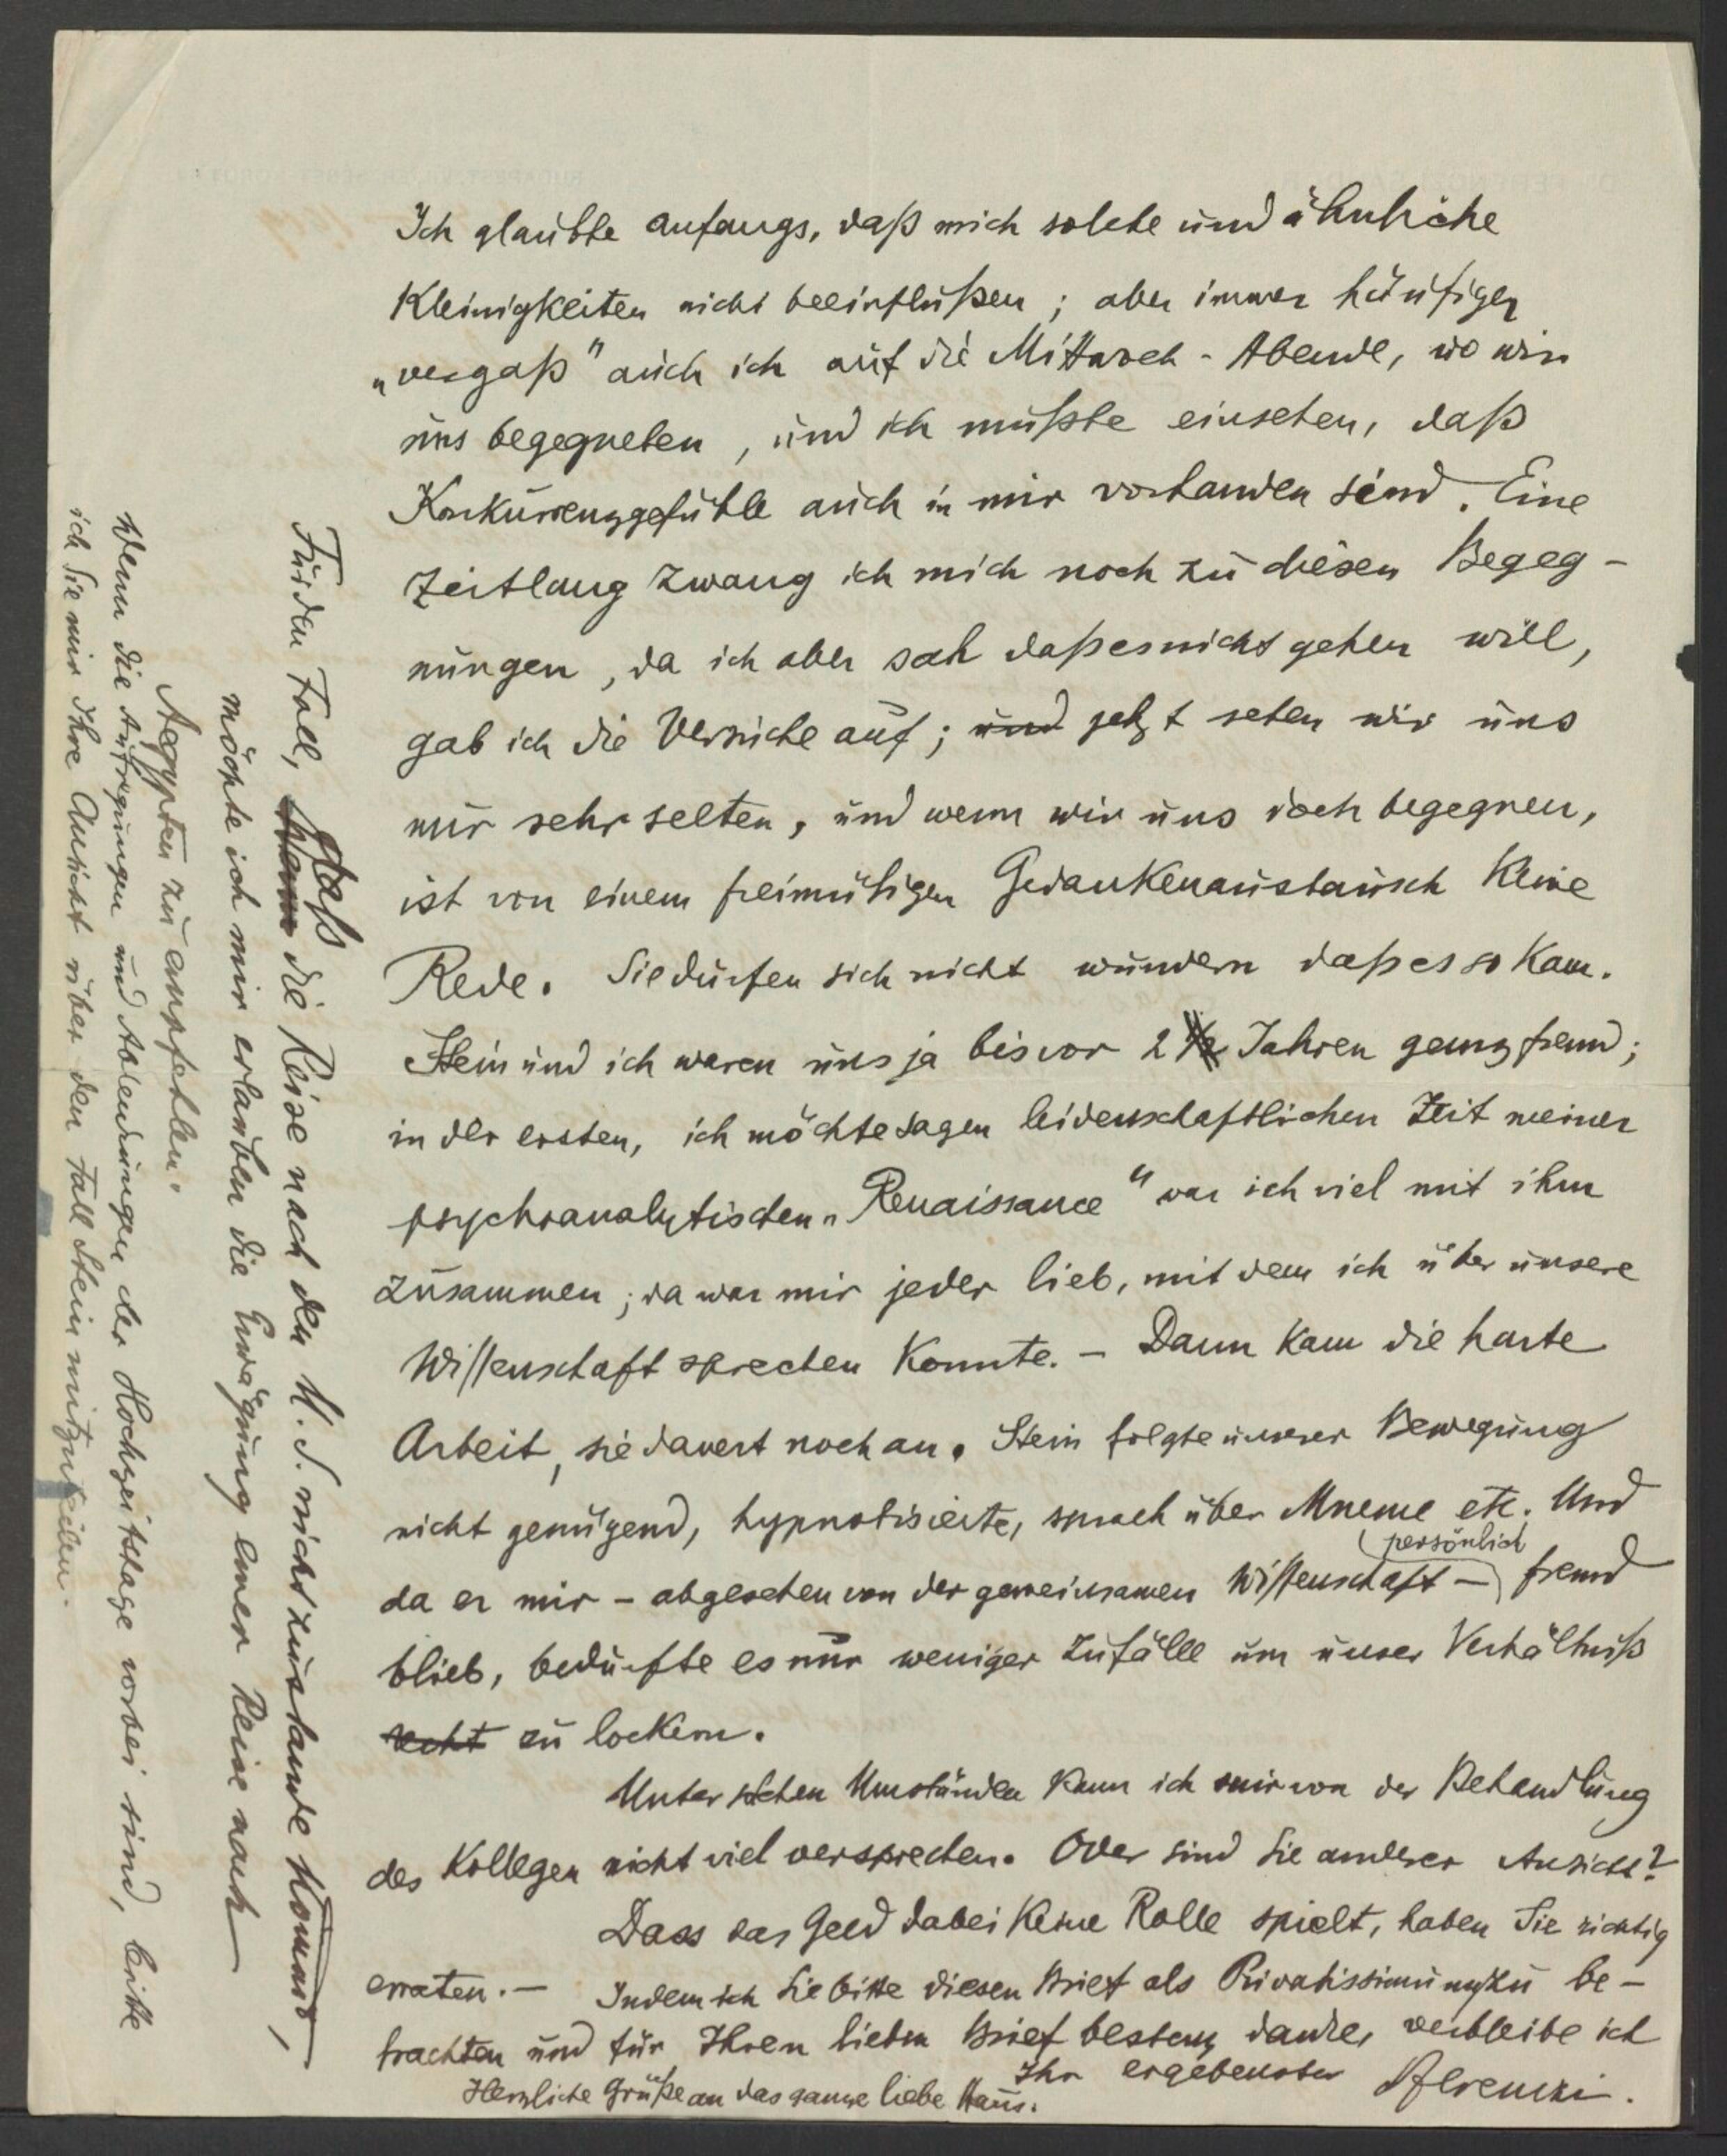 Ich glaubte anfangs, daß mich solche und ähnliche
Kleinigkeiten nicht beeinflußen; aber immer häufiger
„vergaß" auch ich auf die Mittwoch-Abende, wo wir
uns begegneten, und ich mußte einsehen, daß
Konkurrenzgefühle auch in mir vorhanden sind. Eine
Zeitlang zwang ich mich noch zu diesen Begeg-
nungen, da ich aber sah daß es nicht gehen will,
gab ich die Versuche auf; und jetzt sehen wir uns
nur sehr selten, und wenn wir uns doch begegnen,
ist von einem freimütigen Gedankenaustausch keine
Rede. Sie dürfen sich nicht wundern daß es so kam.
Stein und ich waren uns ja bis vor 2 Jahren ganz fremd;
in der ersten, ich möchte sagen leidenschaftlichen Zeit meiner
psychoanalytischen „Renaissance" war ich viel mit ihm
zusammen; da war mir jeder lieb, mit dem ich über unsere
Wissenschaft sprechen konnte. – Dann kam die harte
Arbeit, sie dauert noch an. Stein folgte unserer Bewegung
nicht genügend, hypnotisierte, sprach über Mneme etc. Und
da er mir – abgesehen von der gemeinsamen Wissenschaft – persönlich fremd
blieb, bedurfte es nur weniger Zufälle um unser Verhältniß
recht zu lockern.
Unter solchen Umständen kann ich mir von der Behandlung
des Kollegen nicht viel versprechen. Oder sind Sie anderer Ansicht?
Dass das Geld dabei keine Rolle spielt, haben Sie richtig
erraten. – Indem ich Sie bitte diesen Brief als Privatissimum zu be-
trachten und für Ihren lieben Brief bestens danke, verbleibe ich
Ihr ergebenster Ferenczi.
Herzliche Grüße an das ganze liebe Haus.
Für den Fall, daß die Reise nach den U.S. nicht zustande kommt,
möchte ich mir erlauben die Erwägung einer Reise nach
Aegypten zu empfehlen.
Wenn die Aufregungen und Ablenkungen der Hochzeitstage vorbei sind, bitte
ich Sie mir Ihre Ansicht über den Fall Stein mitzuteilen.